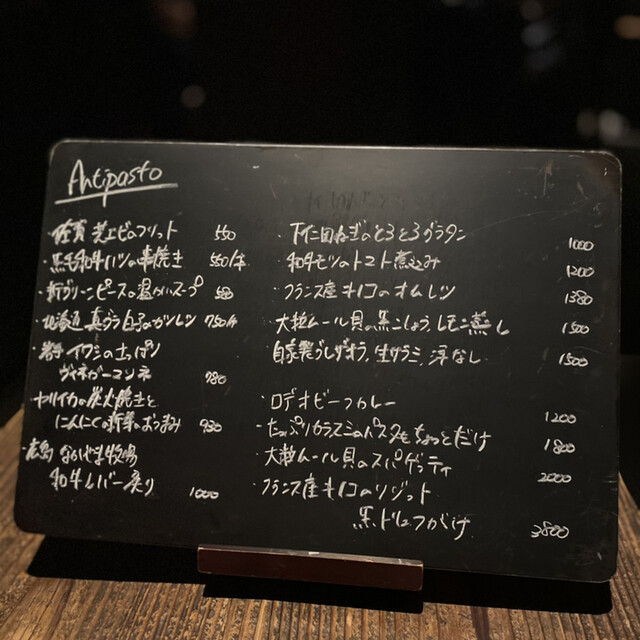 Antipasto
佐賀 芝エビのフリット 550
黒毛和牛ハツの串焼き 550/本
・新グリーンピースの温かいスープ 580
北海道 真ダラ白子の 750/
・岩手 イワシの
ジャーマン 780
ヤリイカの炭火焼きと
にんにくの新芽のおつまみ 980
・広島 なかやま牧場
和牛レバー炙り 1000
・下仁田ねぎのとろとろグラタン 1000
・和牛モツのトマト煮込み 1200
・フランス産キノコのオムレツ 1380
・大粒ムール貝の黒こしょう、レモン蒸し 1500
自家製ブレザオラ、生サラミ、洋なし 1500
・ロデオビーフカレー 1200
・たっぷりカラスミのパスタをちょっとだけ 1800
大粒ムール貝のスパゲッティ 2000
・フランス産キノコのリゾット
黒トリュフがけ 3800